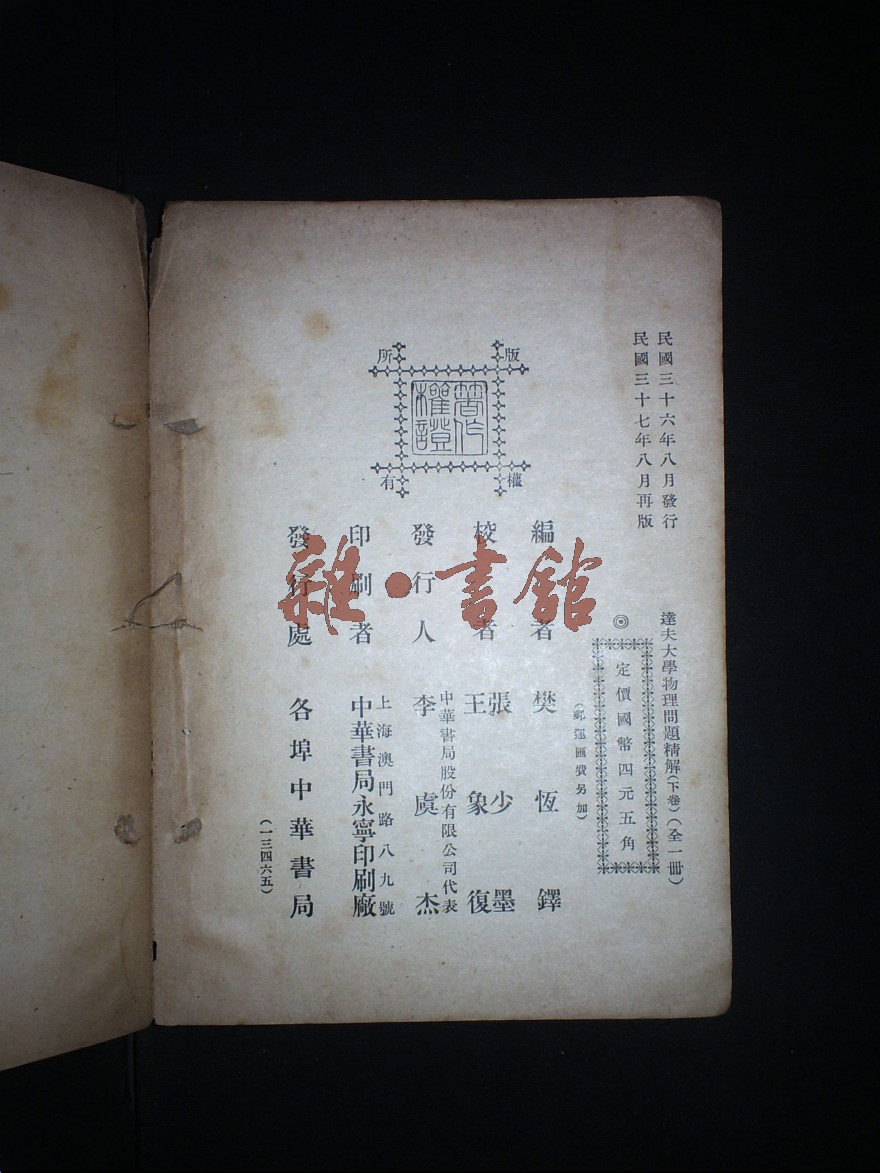 民國三十六年八月發行
民國三十七年八月再版
達夫大學物理問題精解(下卷)(全一冊)
◎定價國幣四元五角
(郵運匯費另加)
版權所有
著作權證
編者 樊恆鐸
校者 張少墨
王象復
中華書局股份有限公司代表
發行人 李虞杰
上海澳門路八九號
印刷者 中華書局永寧印刷廠
發行處 各埠中華書局
(一三四六五)
雜·書館